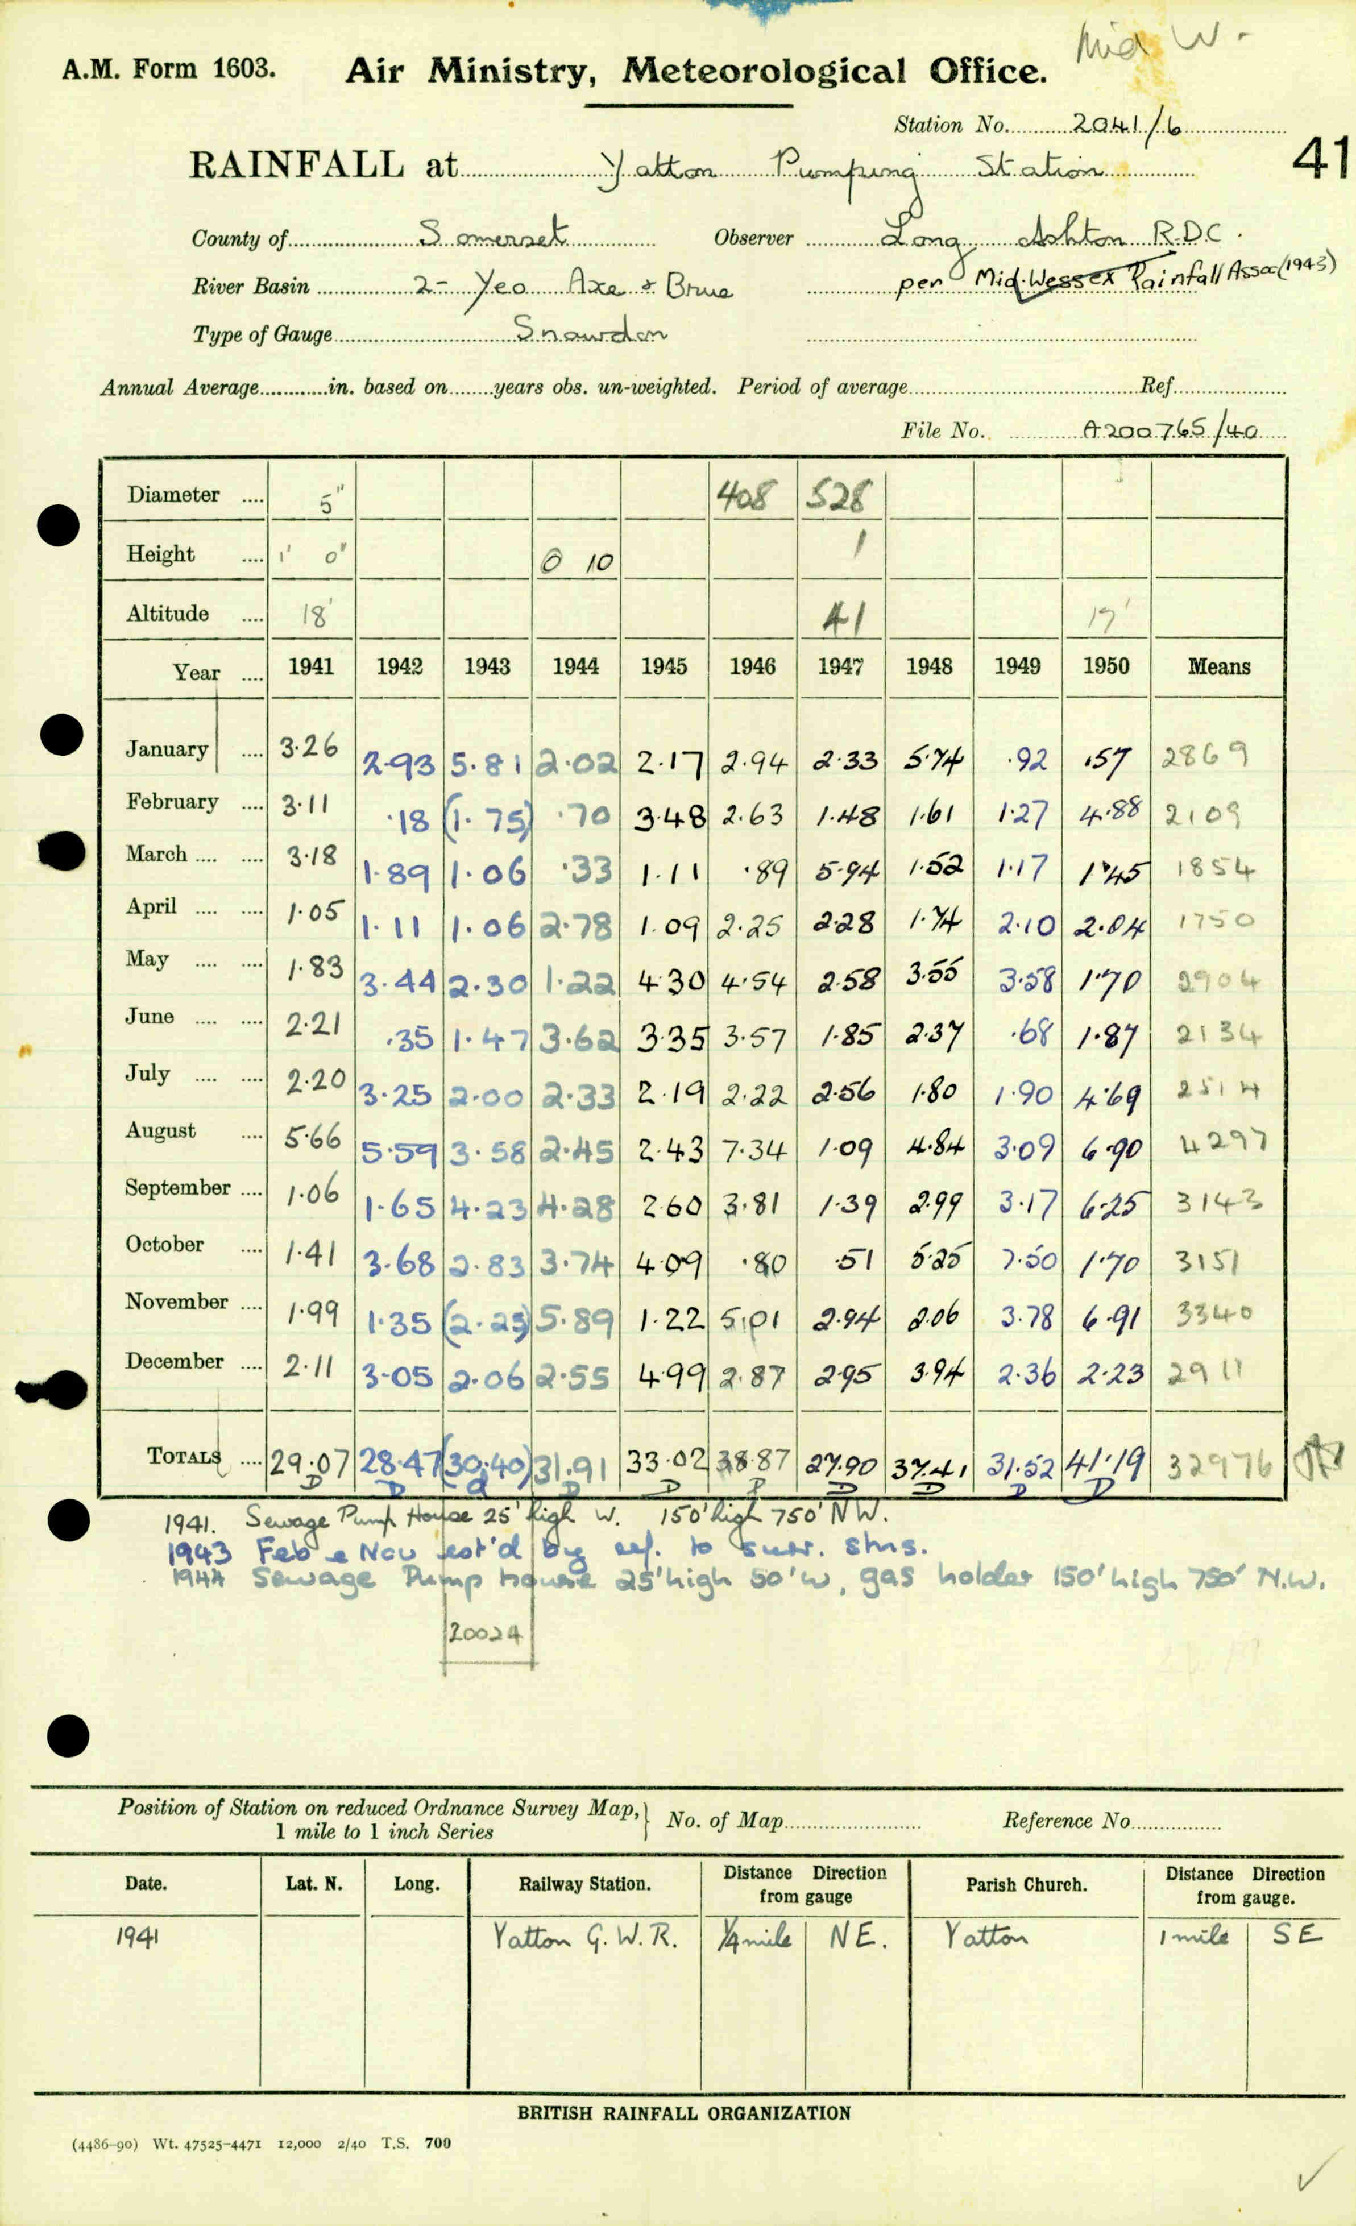 Mid W.
A.M. Form 1603. Air Ministry, Meteorological Office.
Station No. 2041/6
41
RAINFALL at Yatton Pumping Station
County of Somerset Observer Long Ashton R.D.C.
River Basin 2- Yeo Axe & Brue per Mid-Wessex Rainfall Assoc (1943)
Type of Gauge Snowdon
Annual Average in. based on years obs. un-weighted. Period of average Ref.
File No. A200765/40
Diameter 5" 408 528
Height 1' 0" 0 10 1
Altitude 18' 41 17'
Year 1941 1942 1943 1944 1945 1946 1947 1948 1949 1950 Means
January 3.26 2.93 5.81 2.02 2.17 2.94 2.33 5.74 .92 .57 2869
February 3.11 .18 (1.75) .70 3.48 2.63 1.48 1.61 1.27 4.88 2109
March 3.18 1.89 1.06 .33 1.11 .89 5.94 1.52 1.17 1.45 1854
April 1.05 1.11 1.06 2.78 1.09 2.25 2.28 1.74 2.10 2.04 1750
May 1.83 3.44 2.30 1.22 4.30 4.54 2.58 3.55 3.58 1.70 2904
June 2.21 .35 1.47 3.62 3.35 3.57 1.85 2.37 .68 1.87 2134
July 2.20 3.25 2.00 2.33 2.19 2.22 2.56 1.80 1.90 4.69 2514
August 5.66 5.59 3.58 2.45 2.43 7.34 1.09 4.84 3.09 6.90 4297
September 1.06 1.65 4.23 4.28 2.60 3.81 1.39 2.99 3.17 6.25 3143
October 1.41 3.68 2.83 3.74 4.09 .80 .51 5.25 7.50 1.70 3151
November 1.99 1.35 (2.25) 5.89 1.22 5.01 2.94 2.06 3.78 6.91 3340
December 2.11 3.05 2.06 2.55 4.99 2.87 2.95 3.94 2.36 2.23 2911
TOTALS 29.07 28.47 (30.40) 31.91 33.02 38.87 27.90 37.41 31.52 41.19 32976
D D a D D P D D D D
1941. Sewage Pump House 25' high W. 150' high 750' NW.
1943 Feb & Nov est'd by ref. to surr. stns.
1944 Sewage Pump house 25' high 50' W, gas holder 150' high 750' N.W.
20024
Position of Station on reduced Ordnance Survey Map, 1 mile to 1 inch Series } No. of Map Reference No
Date. Lat. N. Long. Railway Station. Distance Direction from gauge Parish Church. Distance Direction from gauge.
1941 Yatton G.W.R. ¼ mile NE. Yatton 1 mile SE
BRITISH RAINFALL ORGANIZATION
(4486-90) Wt. 47525-4471 12,000 2/40 T.S. 700